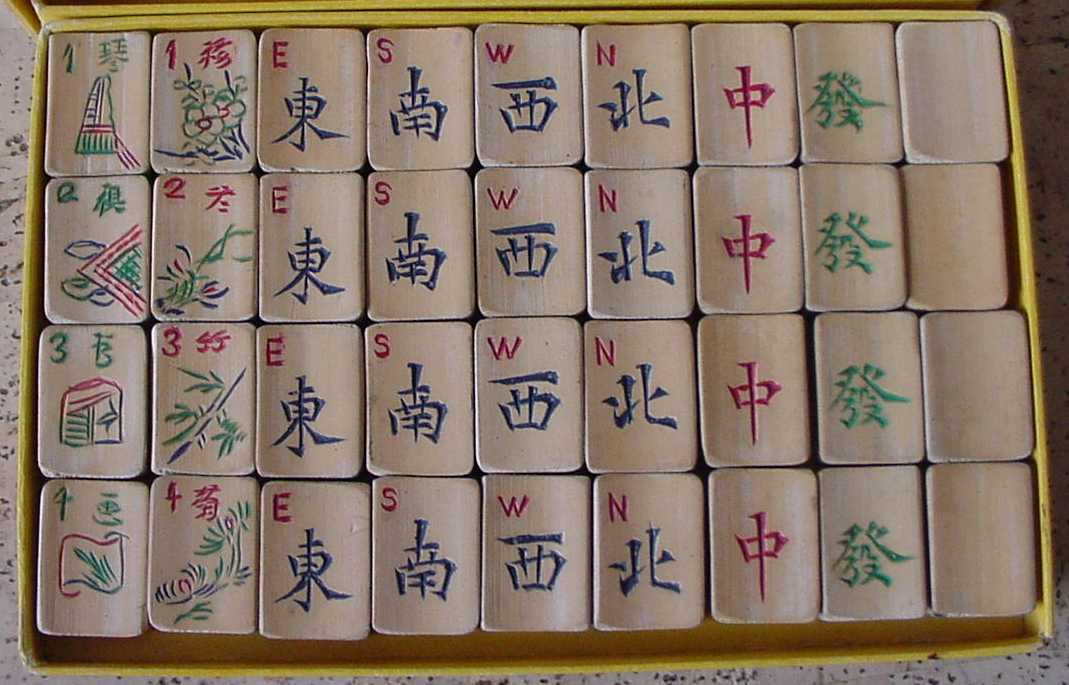 1 琴 1 E S W N
東 南 西 北 中 發
2 棋 2 E S W N
東 南 西 北 中 發
3 3 竹 E S W N
東 南 西 北 中 發
4 画 4 菊 E S W N
東 南 西 北 中 發